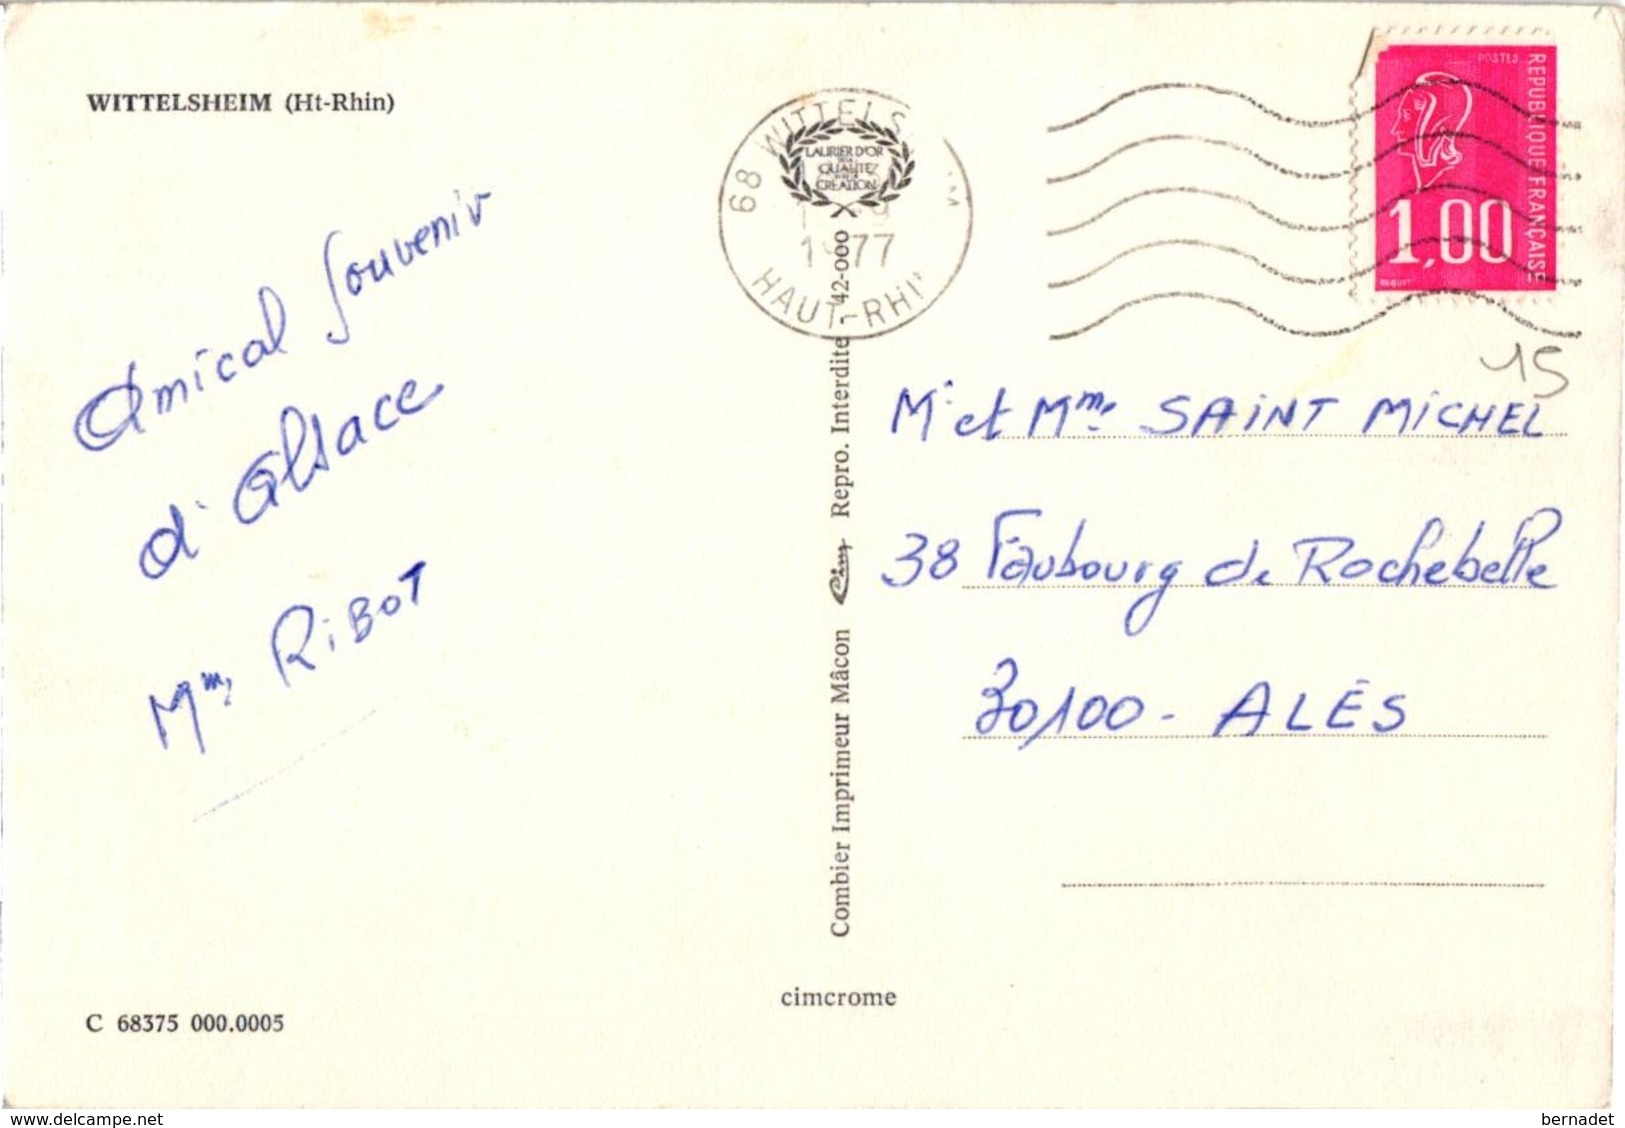 WITTELSHEIM (Ht-Rhin)
Amical Souvenir
d'Alsace
Mme RiBOT
C 68375 000.0005
68 WITTELS
1977
HAUT-RHIN
LAURIER D'OR
QUALITE
CREATION
Combier Imprimeur Mâcon Cim Repro. Interdite 42-000
cimcrome
POSTES
REPUBLIQUE FRANÇAISE
1,00
BEQUET
15
Mr et Mme SAiNT MiCHEL
38 Faubourg de Rochebelle
30100 - ALÈS
www.delcampe.net
bernadet